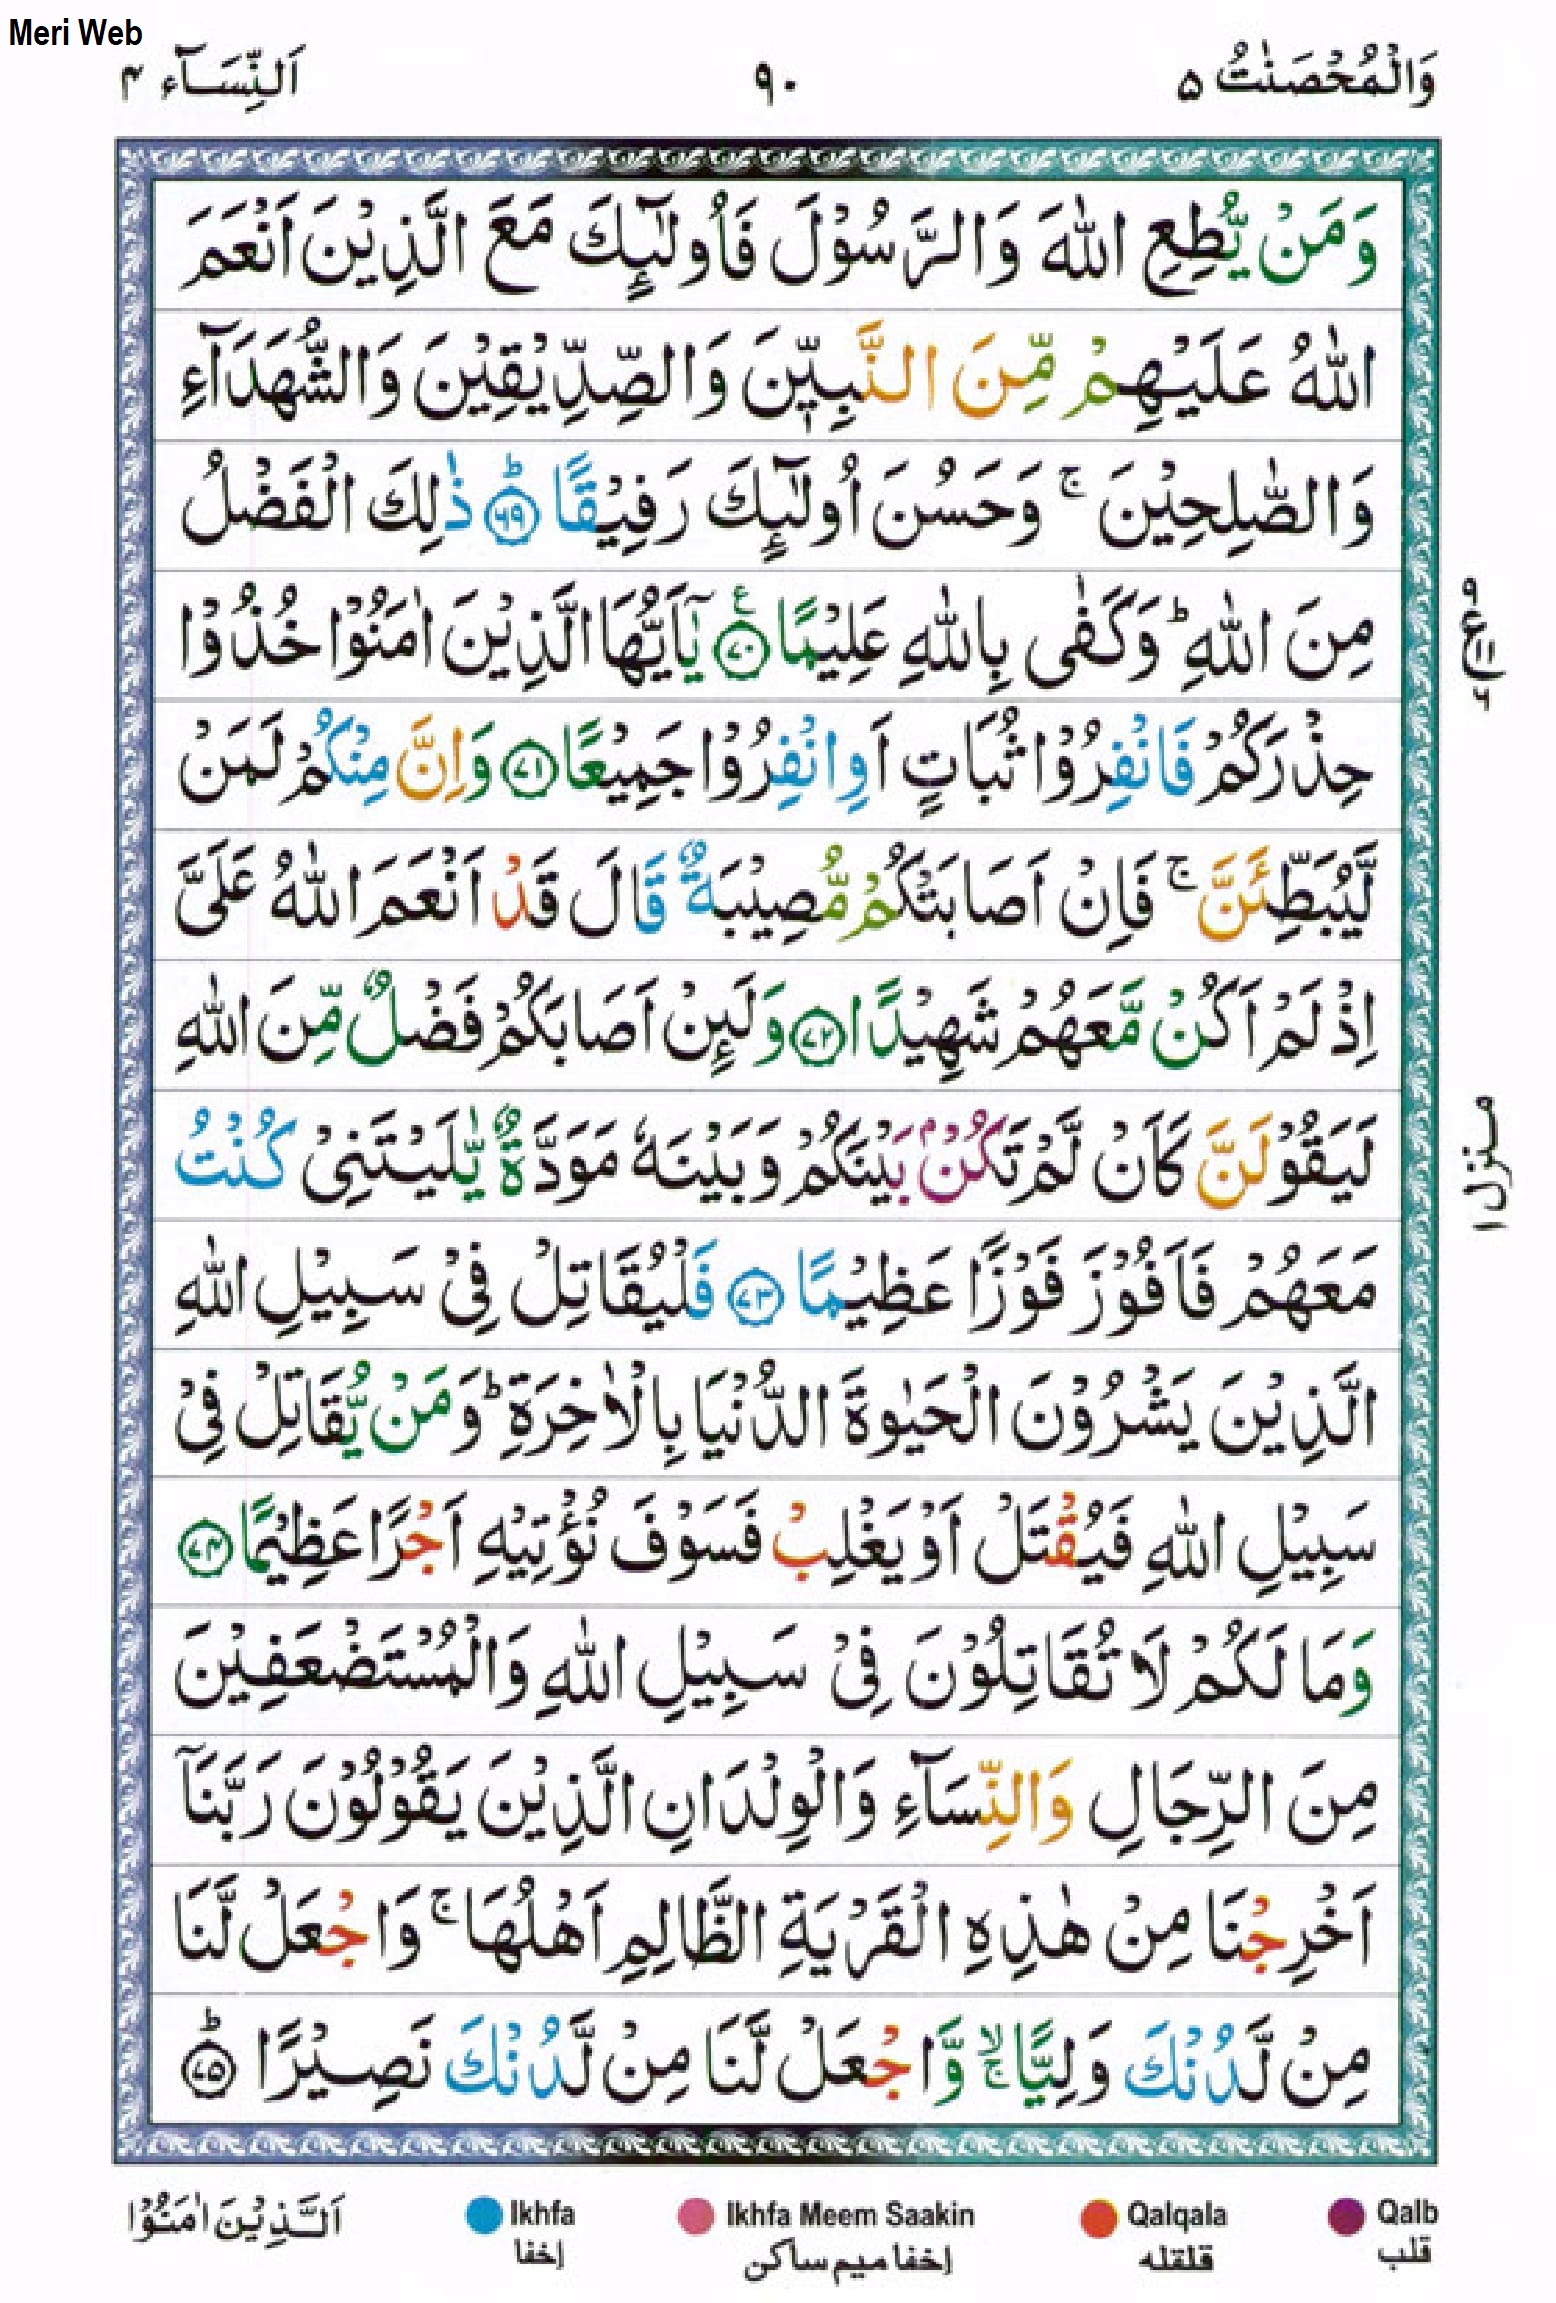 Meri Web
وَالْمُحْصَنٰتُ ۵ ۹۰ اَلنِّسَآء ۴
وَمَنْ يُّطِعِ اللّٰهَ وَالرَّسُوْلَ فَاُولٰٓئِكَ مَعَ الَّذِيْنَ اَنْعَمَ
اللّٰهُ عَلَيْهِمْ مِّنَ النَّبِيّٖنَ وَالصِّدِّيْقِيْنَ وَالشُّهَدَآءِ
وَالصّٰلِحِيْنَ ۚ وَحَسُنَ اُولٰٓئِكَ رَفِيْقًا ؕ۝۶۹ ذٰلِكَ الْفَضْلُ
مِنَ اللّٰهِ ؕ وَكَفٰى بِاللّٰهِ عَلِيْمًا ۝۷۰ ع يٰۤاَيُّهَا الَّذِيْنَ اٰمَنُوْا خُذُوْا
حِذْرَكُمْ فَانْفِرُوْا ثُبَاتٍ اَوِ انْفِرُوْا جَمِيْعًا ۝۷۱ وَاِنَّ مِنْكُمْ لَمَنْ
لَّيُبَطِّئَنَّ ۚ فَاِنْ اَصَابَتْكُمْ مُّصِيْبَةٌ قَالَ قَدْ اَنْعَمَ اللّٰهُ عَلَىَّ
اِذْ لَمْ اَكُنْ مَّعَهُمْ شَهِيْدًا ۝۷۲ وَلَئِنْ اَصَابَكُمْ فَضْلٌ مِّنَ اللّٰهِ
لَيَقُوْلَنَّ كَاَنْ لَّمْ تَكُنْۢ بَيْنَكُمْ وَبَيْنَهٗ مَوَدَّةٌ يّٰلَيْتَنِىْ كُنْتُ
مَعَهُمْ فَاَفُوْزَ فَوْزًا عَظِيْمًا ۝۷۳ فَلْيُقَاتِلْ فِىْ سَبِيْلِ اللّٰهِ
الَّذِيْنَ يَشْرُوْنَ الْحَيٰوةَ الدُّنْيَا بِالْاٰخِرَةِ ؕ وَمَنْ يُّقَاتِلْ فِىْ
سَبِيْلِ اللّٰهِ فَيُقْتَلْ اَوْ يَغْلِبْ فَسَوْفَ نُؤْتِيْهِ اَجْرًا عَظِيْمًا ۝۷۴
وَمَا لَكُمْ لَا تُقَاتِلُوْنَ فِىْ سَبِيْلِ اللّٰهِ وَالْمُسْتَضْعَفِيْنَ
مِنَ الرِّجَالِ وَالنِّسَآءِ وَالْوِلْدَانِ الَّذِيْنَ يَقُوْلُوْنَ رَبَّنَاۤ
اَخْرِجْنَا مِنْ هٰذِهِ الْقَرْيَةِ الظَّالِمِ اَهْلُهَا ۚ وَاجْعَلْ لَّنَا
مِنْ لَّدُنْكَ وَلِيًّا ۙۚ وَّاجْعَلْ لَّنَا مِنْ لَّدُنْكَ نَصِيْرًا ؕ۝۷۵
منزل ۱
Qalb Qalqala Ikhfa Meem Saakin Ikhfa اَلَّذِيْنَ اٰمَنُوْا
قلب قلقله إخفا ميم ساكن إخفا